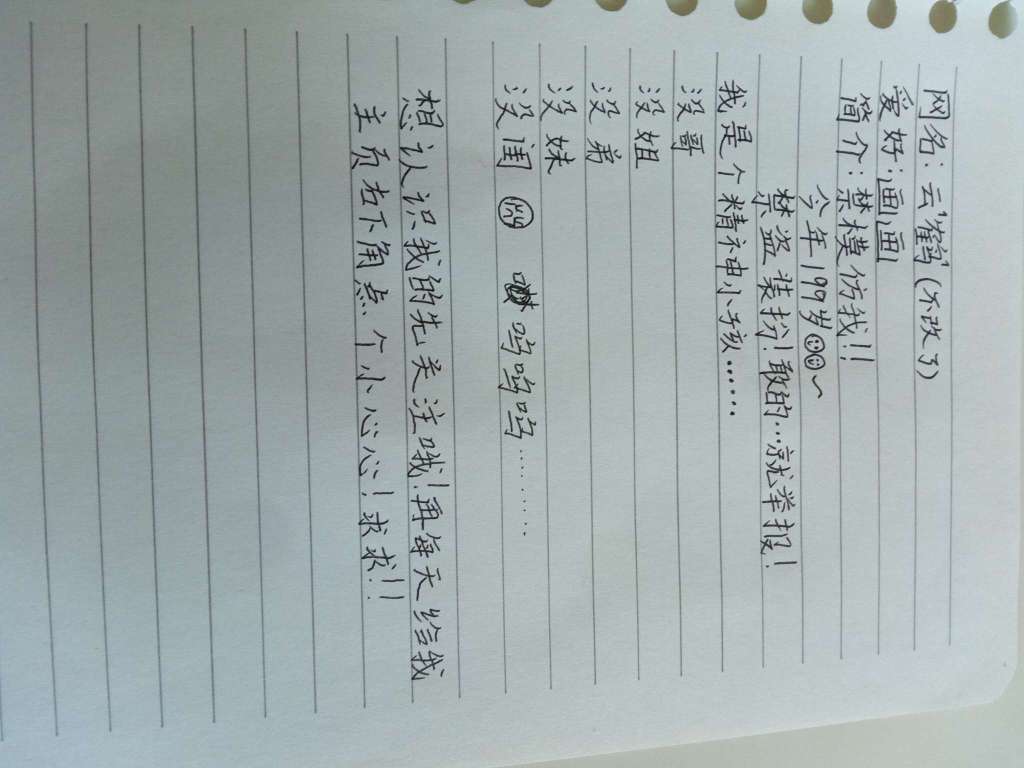 网名:云鹤(不改了)
爱好:画画
简介:禁模仿我!!
今年199岁~
禁盗装扮!敢的…就举报!
我是个精神小孩……
没哥
没姐
没弟
没妹
没闺 呜呜呜………
想认识我的先关注哦!再每天给我
主页右下角点个小心心!求求!!